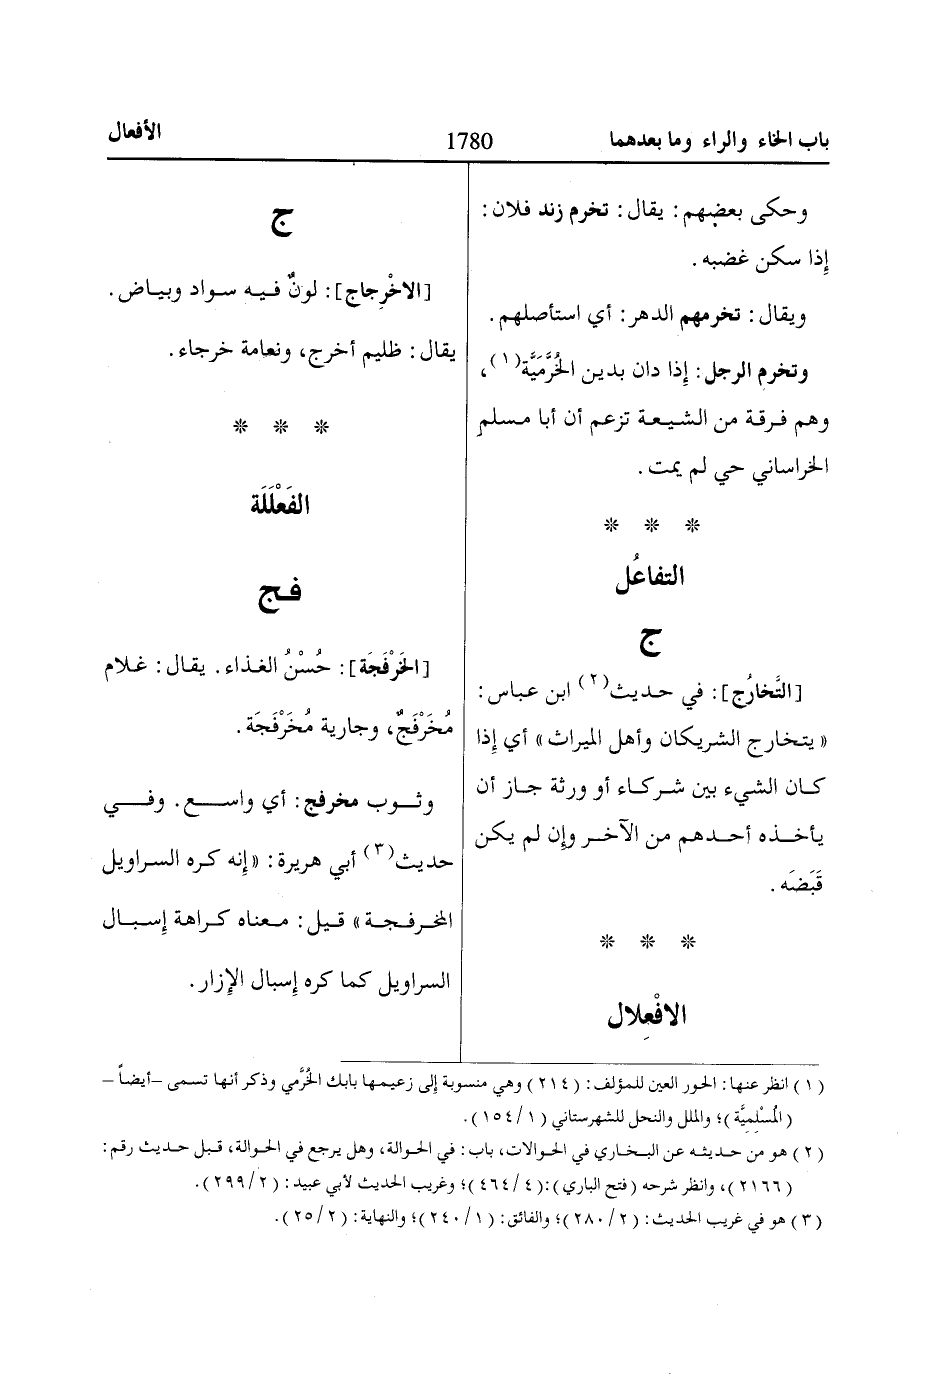 باب الخاء والراء وما بعدهما 1780 الأفعال
وحكى بعضهم: يقال: تخرم زند فلان:
إذا سكن غضبه.
ويقال: تخرمهم الدهر: أي استأصلهم.
وتخرم الرجل: إذا دان بدين الخُرَّمِيَّة(١)،
وهم فرقة من الشيعة تزعم أن أبا مسلم
الخراساني حي لم يمت.
* * *
التفاعُل
ج
[التَّخارُج]: في حديث(٢) ابن عباس:
«يتخارج الشريكان وأهل الميراث» أي إذا
كان الشيء بين شركاء أو ورثة جاز أن
يأخذه أحدهم من الآخر وإن لم يكن
قَبَضَه.
* * *
الافْعِلال
ج
[الاخْرِجاج]: لونٌ فيه سواد وبياض.
يقال: ظليم أخرج، ونعامة خرجاء.
* * *
الفَعْلَلَة
فج
[الخَرْفَجَة]: حُسْنُ الغذاء. يقال: غلام
مُخَرْفَجٌ، وجارية مُخَرْفَجَة.
وثوب مخرفج: أي واسع. وفي
حديث(٣) أبي هريرة: «إنه كره السراويل
المخرفجة» قيل: معناه كراهة إسبال
السراويل كما كره إسبال الإزار.
(١) انظر عنها: الحور العين للمؤلف: (٢١٤) وهي منسوبة إلى زعيمها بابك الخُرَّمي وذكر أنها تسمى –أيضاً–
(المُسْلِمِيَّة)؛ والملل والنحل للشهرستاني (١/١٥٤).
(٢) هو من حديثه عن البخاري في الحوالات، باب: في الحوالة، وهل يرجع في الحوالة، قبل حديث رقم:
(٢١٦٦)، وانظر شرحه (فتح الباري):(٤/٤٦٤)؛ وغريب الحديث لأبي عبيد: (٢/٢٩٩).
(٣) هو في غريب الحديث: (٢/٢٨٠)؛ والفائق: (١/٢٤٠)؛ والنهاية: (٢/٢٥).